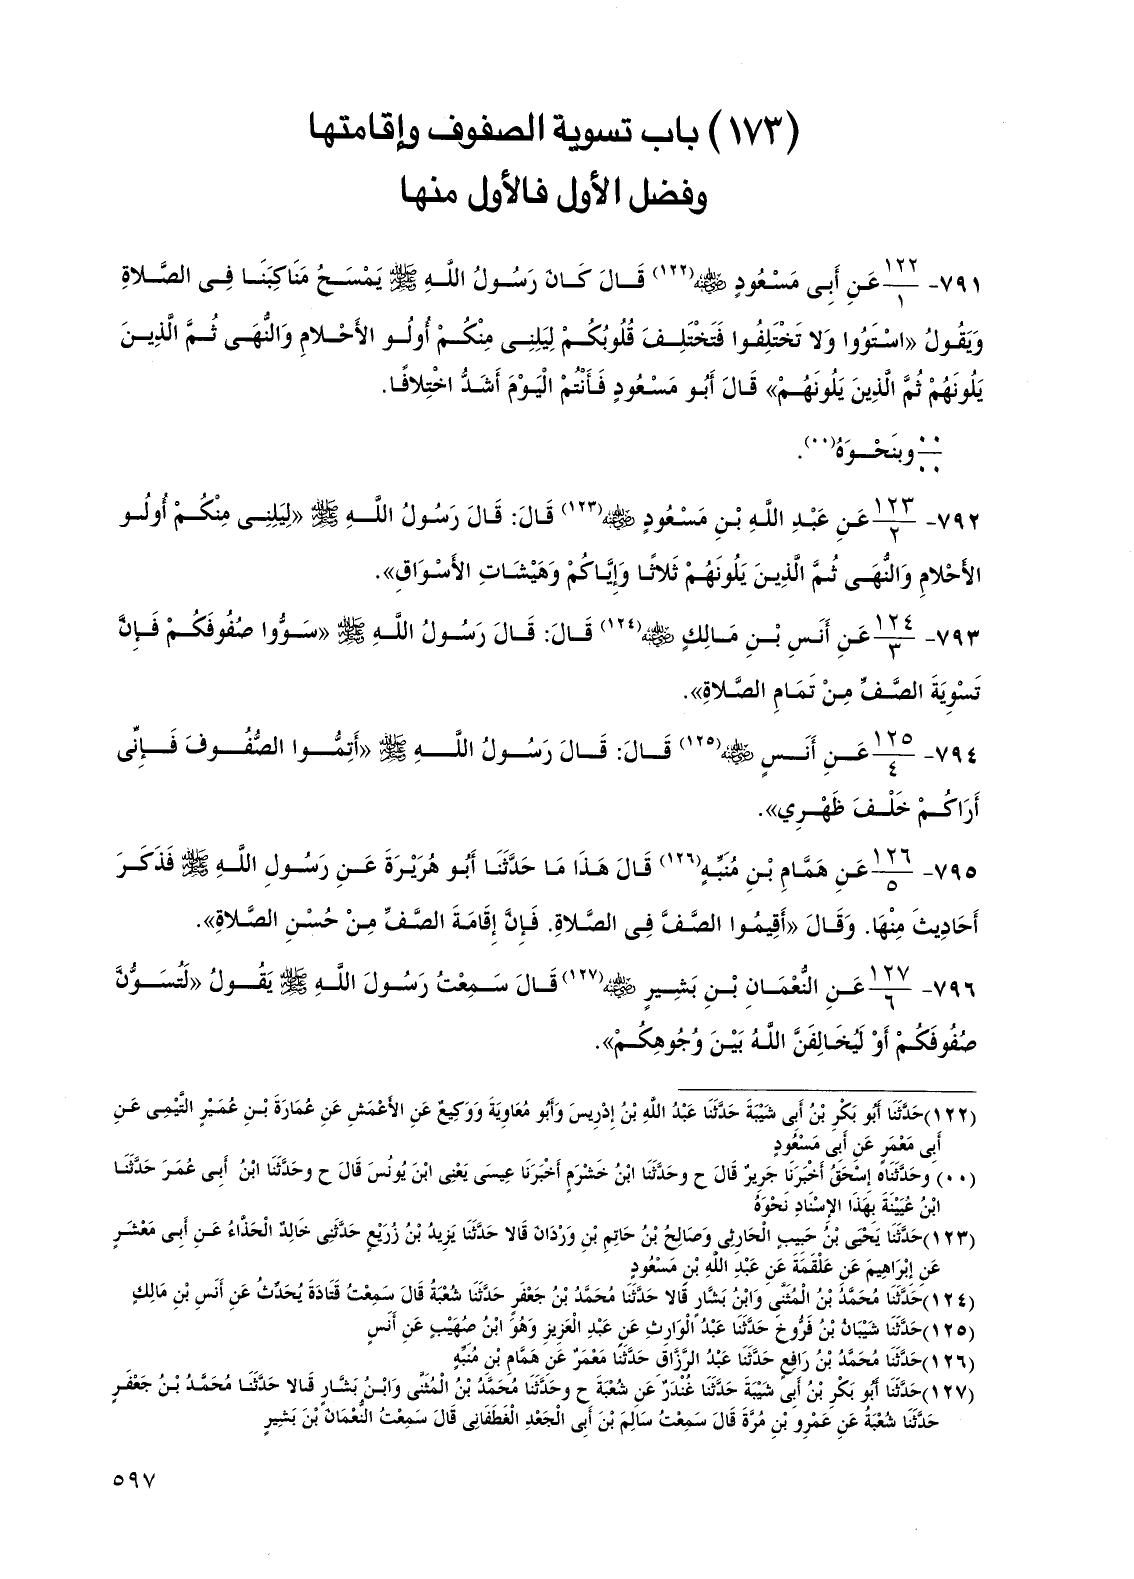 (١٧٣) باب تسوية الصفوف وإقامتها
وفضل الأول فالأول منها
٧٩١- ١٢٢/١ عَنِ أَبِى مَسْعُودٍ ﵁(١٢٢) قَالَ كَانَ رَسُولُ اللَّهِ ﷺ يَمْسَحُ مَنَاكِبَنَا فِى الصَّلاةِ
وَيَقُولُ «اسْتَوُوا وَلا تَخْتَلِفُوا فَتَخْتَلِفَ قُلُوبُكُمْ لِيَلِنِى مِنْكُمْ أُولُو الأَحْلامِ وَالنُّهَى ثُمَّ الَّذِينَ
يَلُونَهُمْ ثُمَّ الَّذِينَ يَلُونَهُمْ» قَالَ أَبُو مَسْعُودٍ فَأَنْتُمْ الْيَوْمَ أَشَدُّ اخْتِلافًا.
٠٠/٠٠ وبِنَحْوَهُ(٠٠).
٧٩٢- ١٢٣/٢ عَنِ عَبْدِ اللَّهِ بْنِ مَسْعُودٍ ﵁(١٢٣) قَالَ: قَالَ رَسُولُ اللَّهِ ﷺ «لِيَلِنِى مِنْكُمْ أُولُو
الأَحْلامِ وَالنُّهَى ثُمَّ الَّذِينَ يَلُونَهُمْ ثَلاثًا وَإِيَّاكُمْ وَهَيْشَاتِ الأَسْوَاقِ».
٧٩٣- ١٢٤/٣ عَنِ أَنَسِ بْنِ مَالِكٍ ﵁(١٢٤) قَالَ: قَالَ رَسُولُ اللَّهِ ﷺ «سَوُّوا صُفُوفَكُمْ فَإِنَّ
تَسْوِيَةَ الصَّفِّ مِنْ تَمَامِ الصَّلاةِ».
٧٩٤- ١٢٥/٤ عَنِ أَنَسٍ ﵁(١٢٥) قَالَ: قَالَ رَسُولُ اللَّهِ ﷺ «أَتِمُّوا الصُّفُوفَ فَإِنِّى
أَرَاكُمْ خَلْفَ ظَهْرِي».
٧٩٥- ١٢٦/٥ عَنِ هَمَّامِ بْنِ مُنَبِّهٍ(١٢٦) قَالَ هَذَا مَا حَدَّثَنَا أَبُو هُرَيْرَةَ عَنِ رَسُولِ اللَّهِ ﷺ فَذَكَرَ
أَحَادِيثَ مِنْهَا. وَقَالَ «أَقِيمُوا الصَّفَّ فِى الصَّلاةِ. فَإِنَّ إِقَامَةَ الصَّفِّ مِنْ حُسْنِ الصَّلاةِ».
٧٩٦- ١٢٧/٦ عَنِ النُّعْمَانِ بْنِ بَشِيرٍ ﵁(١٢٧) قَالَ سَمِعْتُ رَسُولَ اللَّهِ ﷺ يَقُولُ «لَتُسَوُّنَّ
صُفُوفَكُمْ أَوْ لَيُخَالِفَنَّ اللَّهُ بَيْنَ وُجُوهِكُمْ».
(١٢٢)حَدَّثَنَا أَبُو بَكْرِ بْنُ أَبِى شَيْبَةَ حَدَّثَنَا عَبْدُ اللَّهِ بْنُ إِدْرِيسَ وَأَبُو مُعَاوِيَةَ وَوَكِيعٌ عَنِ الأَعْمَشِ عَنِ عُمَارَةَ بْنِ عُمَيْرٍ التَّيْمِى عَنِ
أَبِى مَعْمَرٍ عَنِ أَبِى مَسْعُودٍ
(٠٠) وحَدَّثَنَاه إِسْحَقُ أَخْبَرَنَا جَرِيرٌ قَالَ ح وحَدَّثَنَا ابْنُ خَشْرَمٍ أَخْبَرَنَا عِيسَى يَعْنِى ابْنَ يُونُسَ قَالَ ح وحَدَّثَنَا ابْنُ أَبِى عُمَرَ حَدَّثَنَا
ابْنُ عُيَيْنَةَ بِهَذَا الإِسْنَادِ نَحْوَهُ
(١٢٣)حَدَّثَنَا يَحْيَى بْنُ حَبِيبٍ الْحَارِثِى وَصَالِحُ بْنُ حَاتِمِ بْنِ وَرْدَانَ قَالا حَدَّثَنَا يَزِيدُ بْنُ زُرَيْعٍ حَدَّثَنِى خَالِدٌ الْحَذَّاءُ عَنِ أَبِى مَعْشَرٍ
عَنِ إِبْرَاهِيمَ عَنِ عَلْقَمَةَ عَنِ عَبْدِ اللَّهِ بْنِ مَسْعُودٍ
(١٢٤)حَدَّثَنَا مُحَمَّدُ بْنُ الْمُثَنَّى وَابْنُ بَشَّارٍ قَالا حَدَّثَنَا مُحَمَّدُ بْنُ جَعْفَرٍ حَدَّثَنَا شُعْبَةُ قَالَ سَمِعْتُ قَتَادَةَ يُحَدِّثُ عَنِ أَنَسِ بْنِ مَالِكٍ
(١٢٥)حَدَّثَنَا شَيْبَانُ بْنُ فَرُّوخَ حَدَّثَنَا عَبْدُ الْوَارِثِ عَنِ عَبْدِ الْعَزِيزِ وَهُوَ ابْنُ صُهَيْبٍ عَنِ أَنَسٍ
(١٢٦)حَدَّثَنَا مُحَمَّدُ بْنُ رَافِعٍ حَدَّثَنَا عَبْدُ الرَّزَّاقِ حَدَّثَنَا مَعْمَرٌ عَنِ هَمَّامِ بْنِ مُنَبِّهٍ
(١٢٧)حَدَّثَنَا أَبُو بَكْرِ بْنُ أَبِى شَيْبَةَ حَدَّثَنَا غُنْدَرٌ عَنِ شُعْبَةَ ح وحَدَّثَنَا مُحَمَّدُ بْنُ الْمُثَنَّى وَابْنُ بَشَّارٍ قَالا حَدَّثَنَا مُحَمَّدُ بْنُ جَعْفَرٍ
حَدَّثَنَا شُعْبَةُ عَنِ عَمْرِو بْنِ مُرَّةَ قَالَ سَمِعْتُ سَالِمَ بْنَ أَبِى الْجَعْدِ الْغَطَفَانِى قَالَ سَمِعْتُ النُّعْمَانَ بْنَ بَشِيرٍ
٥٩٧